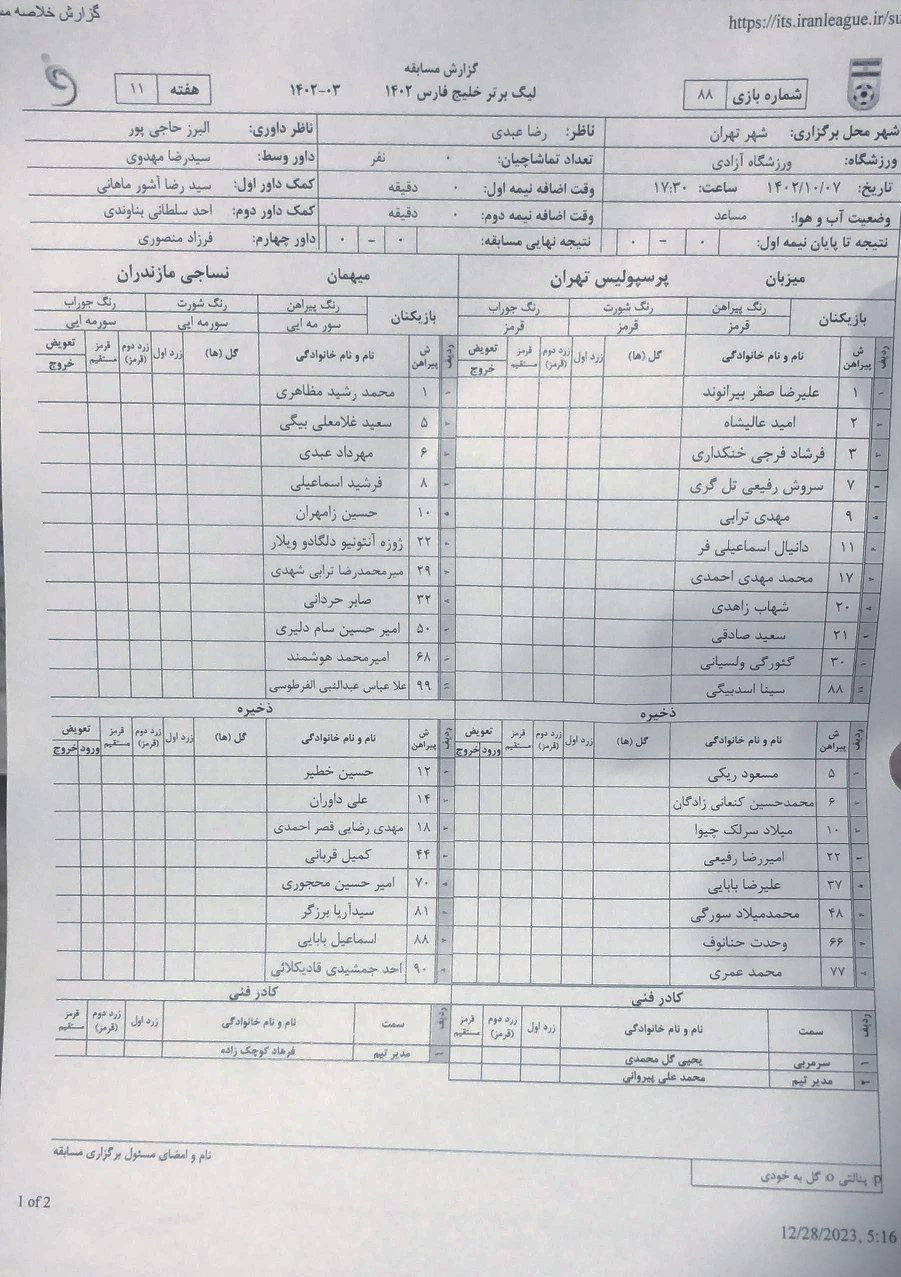 گزارش خلاصه
https://its.iranleague.ir/su
گزارش مسابقه
شماره بازی ۸۸
لیگ برتر خلیج فارس ۱۴۰۲ ۱۴۰۲-۰۳
هفته ۱۱
شهر محل برگزاری: شهر تهران ناظر: رضا عبدی ناظر داوری: البرز حاجی پور
ورزشگاه: ورزشگاه آزادی تعداد تماشاچیان: ۰ نفر داور وسط: سیدرضا مهدوی
تاریخ: ۱۴۰۲/۱۰/۰۷ ساعت: ۱۷:۳۰ وقت اضافه نیمه اول: ۰ دقیقه کمک داور اول: سید رضا آشور ماهانی
وضعیت آب و هوا: مساعد وقت اضافه نیمه دوم: ۰ دقیقه کمک داور دوم: احد سلطانی بناوندی
نتیجه تا پایان نیمه اول: ۰ - ۰ نتیجه نهایی مسابقه: ۰ - ۰ داور چهارم: فرزاد منصوری
میزبان پرسپولیس تهران
بازیکنان رنگ پیراهن رنگ شورت رنگ جوراب
قرمز قرمز قرمز
ردیف ش پیراهن نام و نام خانوادگی گل (ها) زرد اول زرد دوم (قرمز) قرمز مستقیم تعویض خروج
۱ علیرضا صفر بیرانوند
۲ امید عالیشاه
۳ فرشاد فرجی خنکداری
۷ سروش رفیعی تل گری
۹ مهدی ترابی
۱۱ دانیال اسماعیلی فر
۱۷ محمد مهدی احمدی
۲۰ شهاب زاهدی
۲۱ سعید صادقی
۳۰ گئورگی ولسیانی
۸۸ سینا اسدبیگی
ذخیره
ردیف ش پیراهن نام و نام خانوادگی گل (ها) زرد اول زرد دوم (قرمز) قرمز مستقیم تعویض ورود خروج
۵ مسعود ریکی
۶ محمدحسین کنعانی زادگان
۱۰ میلاد سرلک چیوا
۲۲ امیررضا رفیعی
۳۷ علیرضا بابایی
۴۸ محمدمیلاد سورگی
۶۶ وحدت حنانوف
۷۷ محمد عمری
کادر فنی
ردیف سمت نام و نام خانوادگی زرد اول زرد دوم (قرمز) قرمز مستقیم
۱ سرمربی یحیی گل محمدی
۲ مدیر تیم محمد علی پیروانی
میهمان نساجی مازندران
بازیکنان رنگ پیراهن رنگ شورت رنگ جوراب
سورمه ایی سورمه ایی سورمه ایی
ردیف ش پیراهن نام و نام خانوادگی گل (ها) زرد اول زرد دوم (قرمز) قرمز مستقیم تعویض خروج
۱ محمد رشید مظاهری
۵ سعید غلامعلی بیگی
۶ مهرداد عبدی
۸ فرشید اسماعیلی
۱۰ حسین زامهران
۲۲ ژوزه آنتونیو دلگادو ویلار
۲۹ میرمحمدرضا ترابی شهدی
۳۲ صابر حردانی
۵۰ امیر حسین سام دلیری
۶۸ امیرمحمد هوشمند
۹۹ علا عباس عبدالنبی الفرطوسی
ذخیره
ردیف ش پیراهن نام و نام خانوادگی گل (ها) زرد اول زرد دوم (قرمز) قرمز مستقیم تعویض ورود خروج
۱۲ حسین خطیر
۱۴ علی داوران
۱۸ مهدی رضایی قصر احمدی
۴۴ کمیل قربانی
۷۰ امیر حسین محجوری
۸۱ سیدآریا برزگر
۸۸ اسماعیل بابایی
۹۰ احد جمشیدی قادیکلائی
کادر فنی
ردیف سمت نام و نام خانوادگی زرد اول زرد دوم (قرمز) قرمز مستقیم
۱ مدیر تیم فرهاد کوچک زاده
نام و امضای مسئول برگزاری مسابقه
p پنالتی o گل به خودی
1 of 2
12/28/2023, 5:16